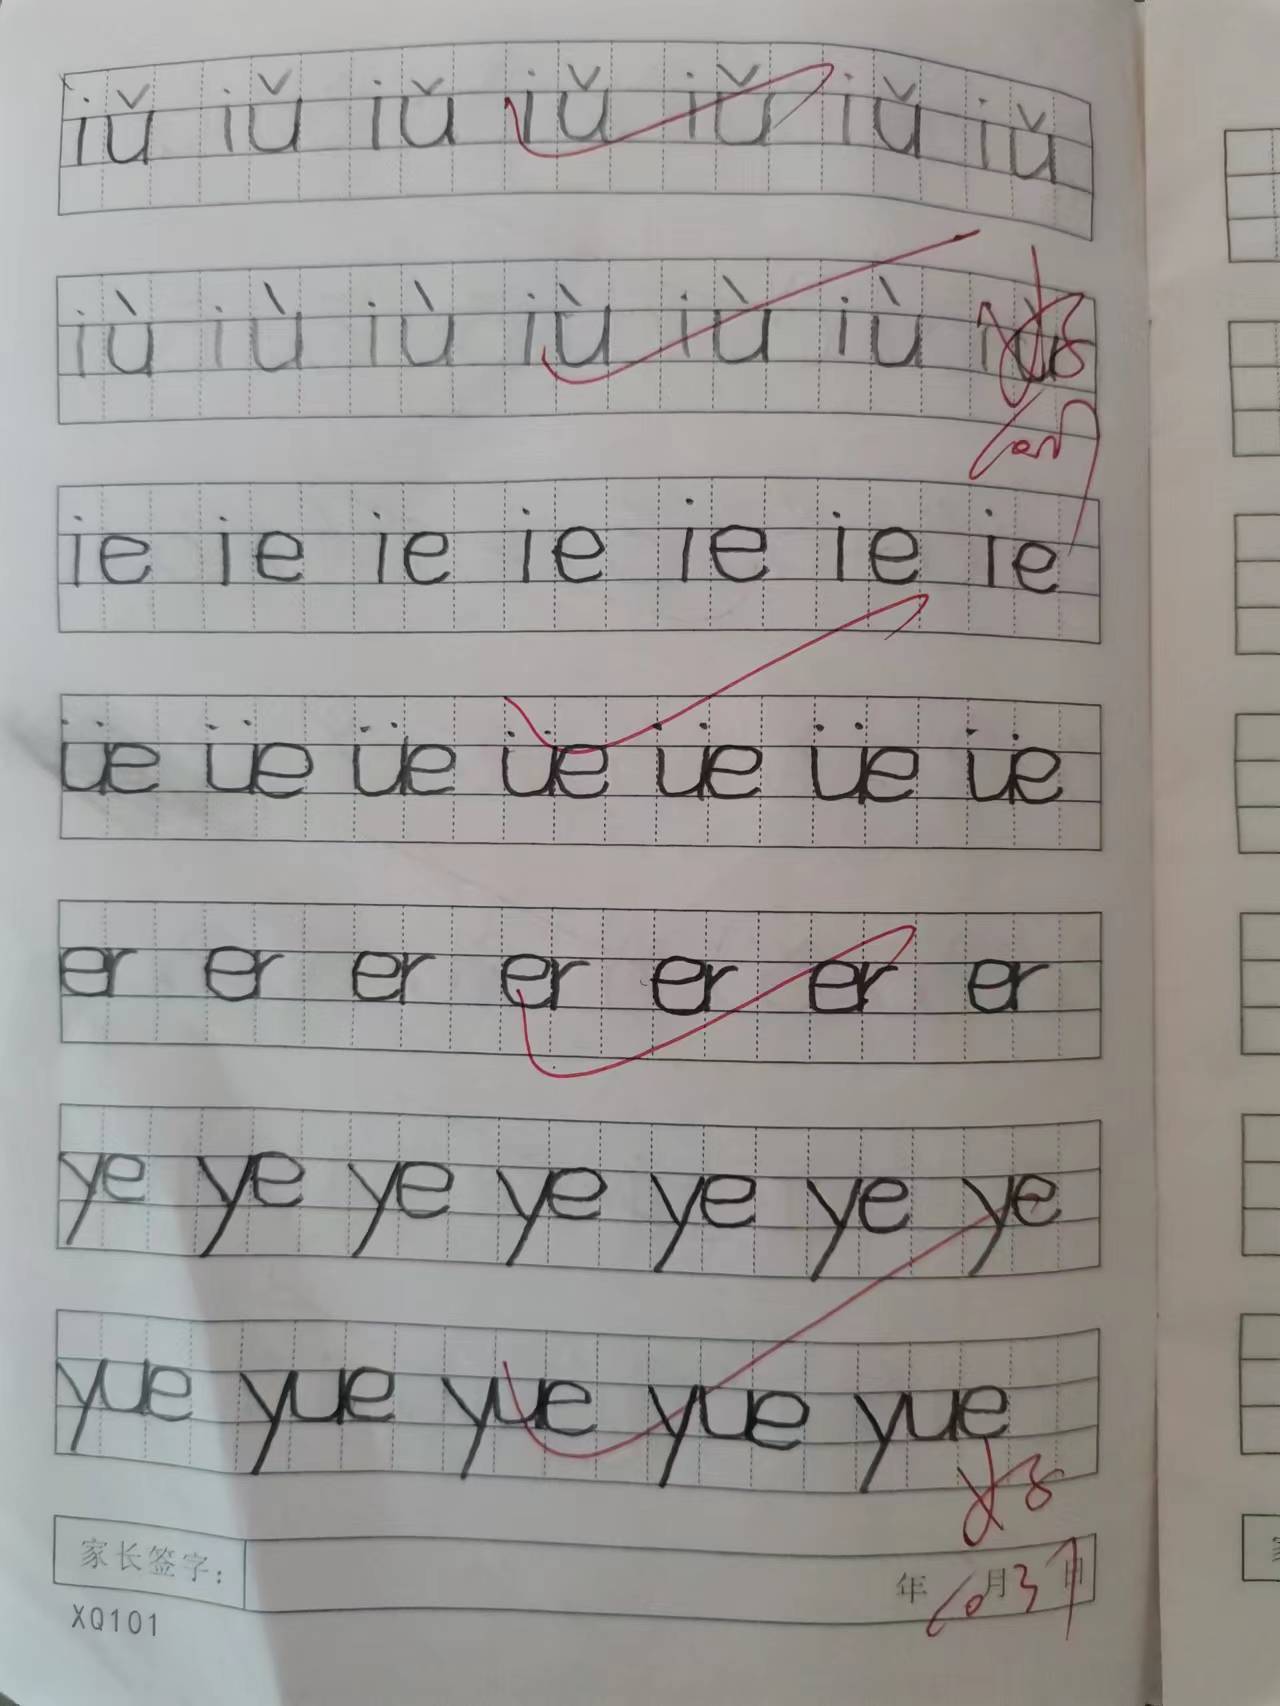 iǔ iǔ iǔ iǔ iǔ iǔ iǔ
iù iù iù iù iù iù iù
ie ie ie ie ie ie ie
üe üe üe üe üe üe üe
er er er er er er er
ye ye ye ye ye ye ye
yue yue yue yue yue
好
家长签字： 年 10月31日
XQ101